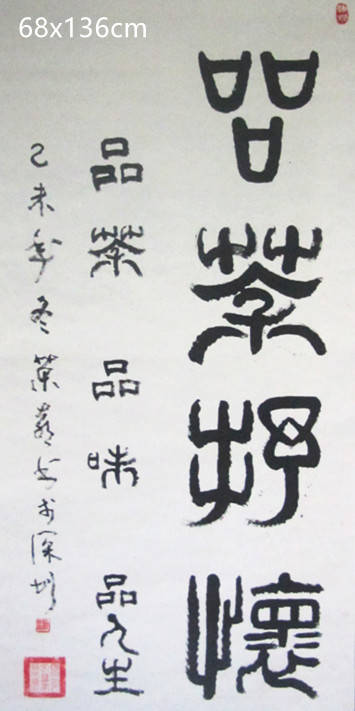 68x136cm
品茶抒懷
品茶 品味 品人生
己未年冬 榮嘉书于深圳